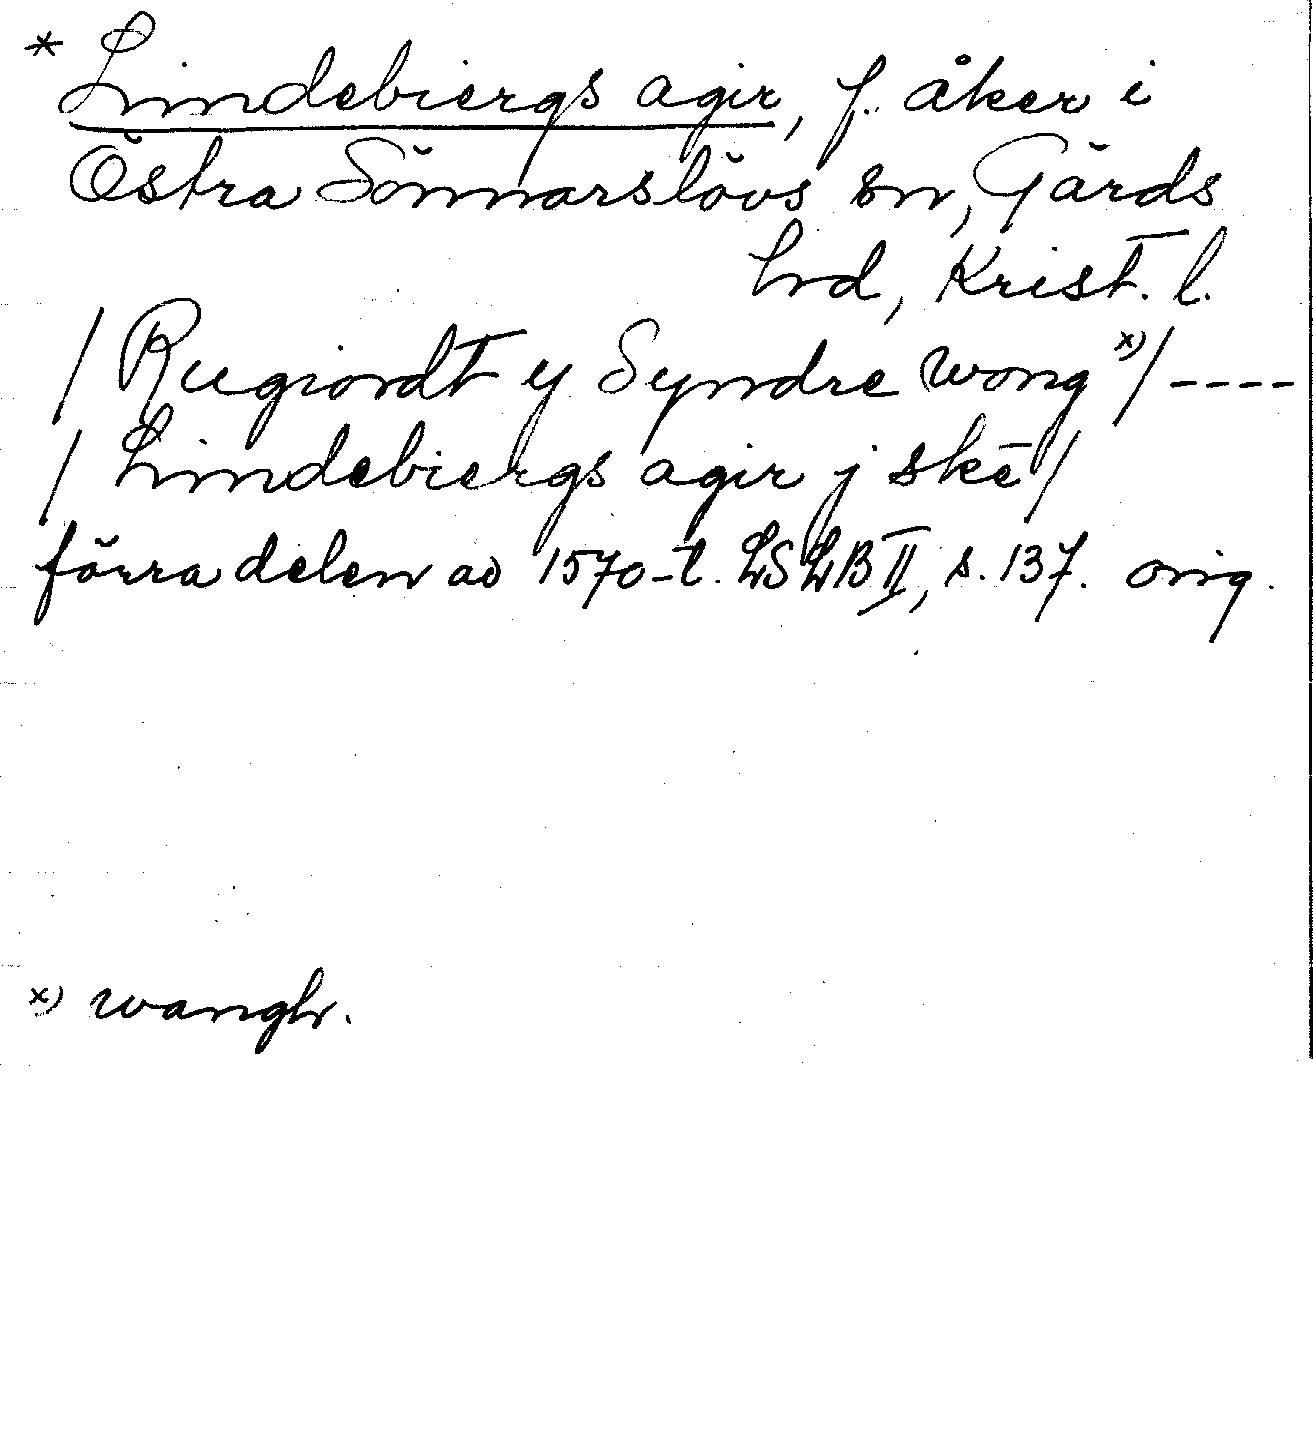 * Lindebiergs agir, f. åker i
Östra Sönnarslövs sn, Gärds
hd, Krist. l.
/ Rugiordt y Syndre wong x) / ----
/ Lindebiergs agir j skē /
förra delen av 1570-t. LSLB II, s. 137. orig.
x) wangh.